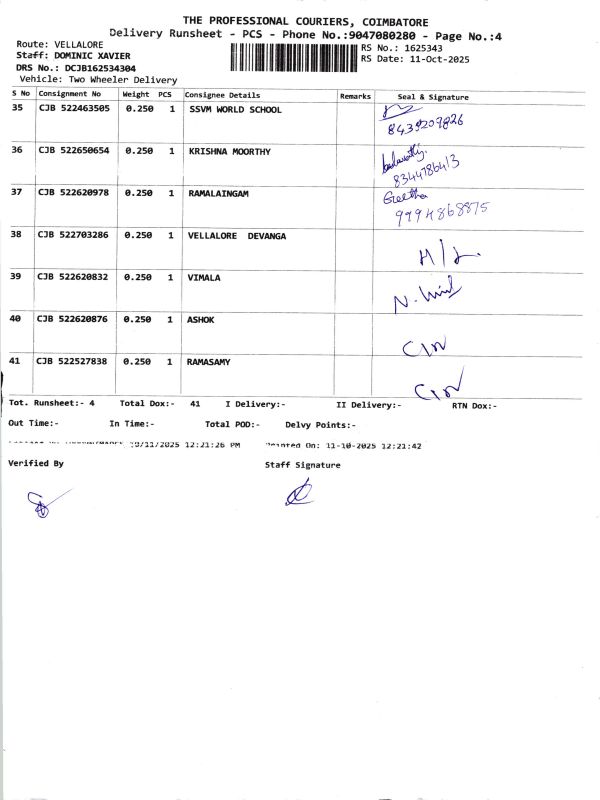 THE PROFESSIONAL COURIERS, COIMBATORE
Delivery Runsheet - PCS - Phone No.:9047080280 - Page No.:4
Route: VELLALORE
RS No.: 1625343
Staff: DOMINIC XAVIER
RS Date: 11-Oct-2025
DRS No.: DCJB162534304
Vehicle: Two Wheeler Delivery
S No Consignment No Weight PCS Consignee Details Remarks Seal & Signature
35 CJB 522463505 0.250 1 SSVM WORLD SCHOOL
8439209826
36 CJB 522650654 0.250 1 KRISHNA MOORTHY
8344786413
37 CJB 522620978 0.250 1 RAMALAINGAM Geetha
9994868875
38 CJB 522703286 0.250 1 VELLALORE DEVANGA
39 CJB 522620832 0.250 1 VIMALA
40 CJB 522620876 0.250 1 ASHOK
41 CJB 522527838 0.250 1 RAMASAMY
Tot. Runsheet:- 4 Total Dox:- 41 I Delivery:- II Delivery:- RTN Dox:-
Out Time:- In Time:- Total POD:- Delvy Points:-
10/11/2025 12:21:26 PM Printed On: 11-10-2025 12:21:42
Verified By Staff Signature